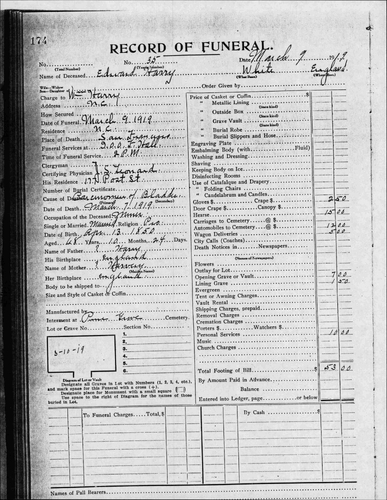 174
RECORD OF FUNERAL.
No. No. 35 Date, March 9 1919
(Total Number) (Yearly Number)
Name of Deceased Edward Harry White England
Charge to Harry
Address N.C.
How Secured
Date of Funeral March 9 1919
Residence N.C.
Place of Death San Francisco
Funeral Services at I.O.O.F. Hall
Time of Funeral Service P.M.
Clergyman
Certifying Physician Leonard
His Residence Post St
Number of Burial Certificate
Cause of Death Carcinoma of Bladder
Date of Death Mch 7 1919
Occupation of the Deceased Miner
Single or Married Religion Pro
Date of Birth Apr. 13 1850
Aged 68 Years 10 Months 24 Days
Name of Father Harry
His Birthplace England
Name of Mother
Her Birthplace England
Body to be shipped to
Size and Style of Casket or Coffin
Manufactured by
Interment at Pine Grove Cemetery
Lot or Grave No. Section No.
1.
2.
3.
4.
5.
6.
3-10-19
Diagram of Lot or Vault
Designate all Graves in Lot with Numbers (1, 2, 3, 4, etc.), and mark space for this Funeral with a cross (+).
Designate place for Monument with a small square
Use space to the right of Diagram for the names of those buried in Lot.
Order Given by
Price of Casket or Coffin $
" Metallic Lining
" Outside Box
" Grave Vault
" Burial Robe
" Burial Slippers and Hose
Engraving Plate
Embalming Body (with Fluid)
Washing and Dressing
Shaving
Keeping Body on Ice
Disinfecting Rooms
Use of Catafalque and Drapery
" Folding Chairs
" Candelabrum and Candles
Gloves $ Crape $ 2 50
Door Crape $ Canopy $
Hearse 15 00
Carriages to Cemetery @ $
Automobiles to Cemetery @ $ 12 00
Wagon Deliveries 5 00
City Calls (Coaches)
Death Notices in Newspapers
Flowers
Outlay for Lot
Opening Grave or Vault 7 00
Lining Grave 1 50
Evergreen
Tent or Awning Charges
Vault Rental
Shipping Charges, prepaid
Removal Charges
Cremation Charges
Porters $ Watchers $
Personal Services 10 00
Music
Church Charges
Total Footing of Bill $ 53 00
By Amount Paid in Advance
Balance
Entered into Ledger, page or below.
To Funeral Charges $ By Cash $
Names of Pall Bearers